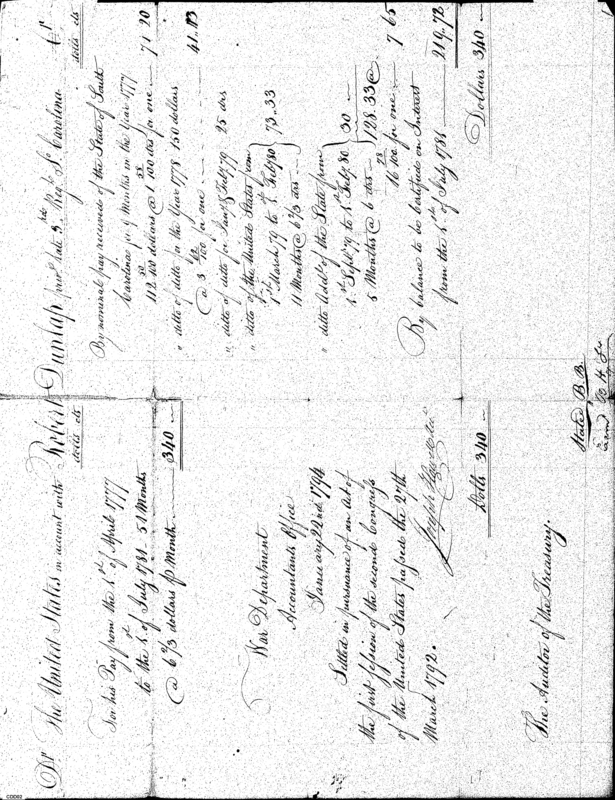 Dr. The United States in account with Robert Dunlap private late 3rd Regt. So. Carolina Cr.
dolls cts
For his Pay from the 4th of April 1777
to the 4th of July 1781 51 Months
@ 6 2/3 dollars p Month 340
War Department
Accountants Office
January 22nd 1794
Settled in pursuance of an Act of
the first session of the second Congress
of the United States passed the 27th
March 1792.
Joseph Howell
Dolls 340
The Auditor of the Treasury.
dolls cts
By nominal pay received of the State of South
Carolina for 9 Months in the Year 1777
@ 1 for one 71 20
" ditto of ditto in the Year 1778 150 dollars
@ 3 for one 41.
" ditto of ditto for Jany & Feby 79 25 drs
" ditto of the United States from
1st March 79 to Feby 80 73.33
11 Months @ 6 2/3 drs
" ditto Addl. of the State from
Sept 79 to Feby 80 30
5 Months @ 6 drs 128.33 @
16 for one 7 65
By balance to be certified on Interest
from the 4th of July 1781 219.72
Dollars 340
Stated B.B.